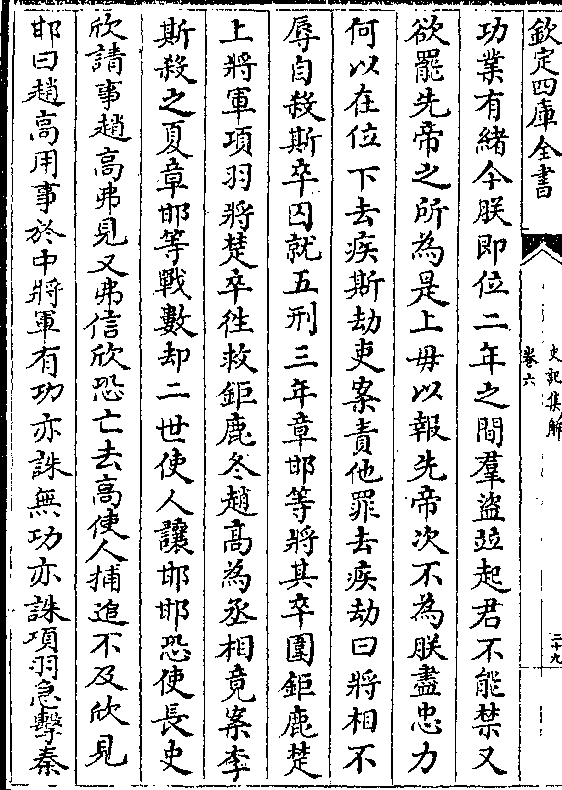 欽定四庫全書
史記集解
卷六
二十九
功業有緒今朕即位二年之間羣盜竝起君不能禁又
欲罷先帝之所為是上毋以報先帝次不為朕盡忠力
何以在位下去疾斯劫吏案責他罪去疾劫曰將相不
辱自殺斯卒囚就五刑三年章邯等將其卒圍鉅鹿楚
上將軍項羽將楚卒往救鉅鹿冬趙高為丞相竟案李
斯殺之夏章邯等戰數却二世使人讓邯邯恐使長史
欣請事趙高弗見又弗信欣恐亡去高使人捕追不及欣見
邯曰趙高用事於中將軍有功亦誅無功亦誅項羽急擊秦